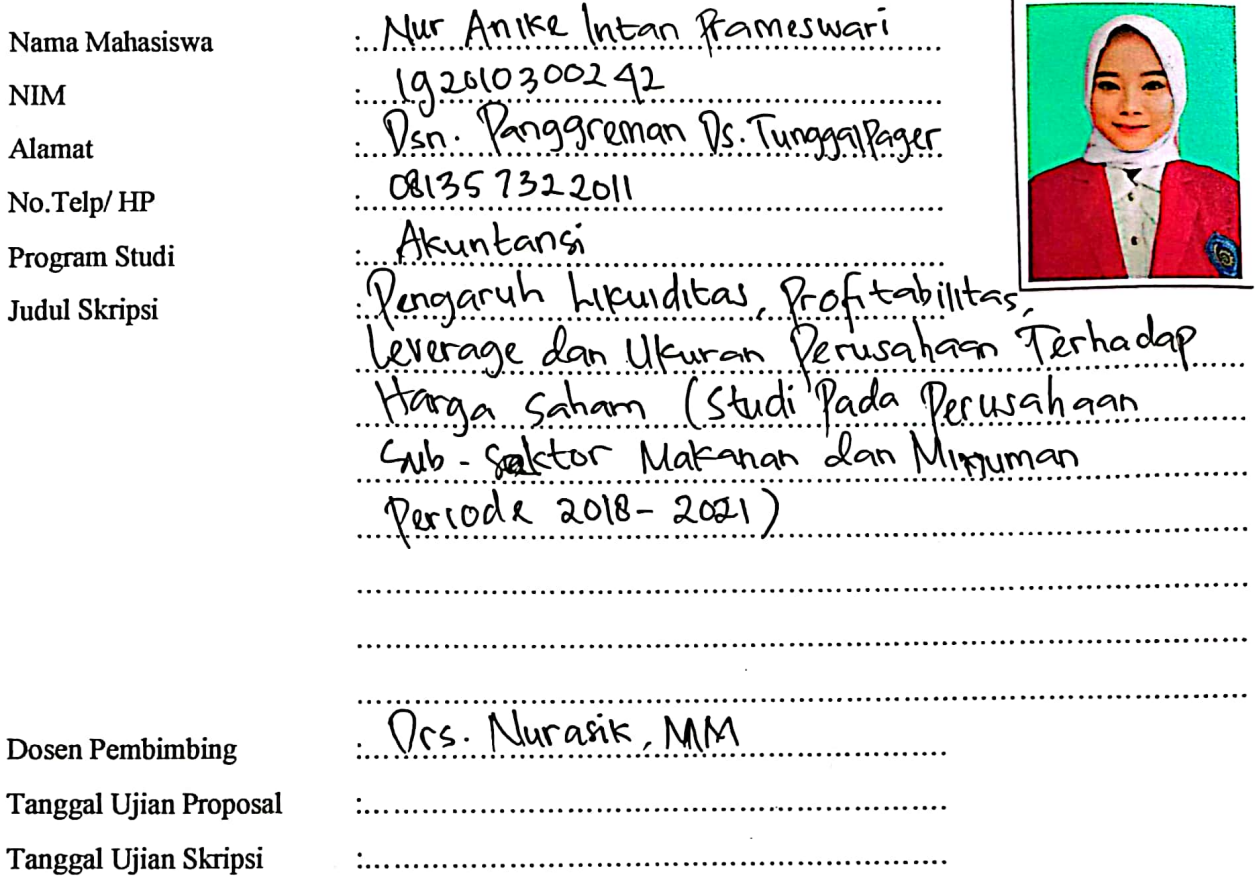 Nama Mahasiswa : Nur Anike Intan Prameswari
NIM : 192010300242
Alamat : Dsn. Panggreman Ds. Tunggalpager
No.Telp/ HP : 081357322011
Program Studi : Akuntansi
Judul Skripsi : Pengaruh Likuiditas, Profitabilitas,
Leverage dan Ukuran Perusahaan Terhadap
Harga Saham (Studi Pada Perusahaan
Sub - Sektor Makanan dan Minuman
Periode 2018 - 2021)
Dosen Pembimbing : Drs. Nurasik, MM
Tanggal Ujian Proposal :
Tanggal Ujian Skripsi :